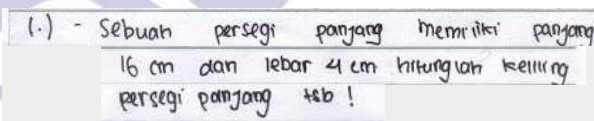 (.) - Sebuah persegi panjang memiliki panjang
16 cm dan lebar 4 cm hitunglah keliling
persegi panjang tsb !